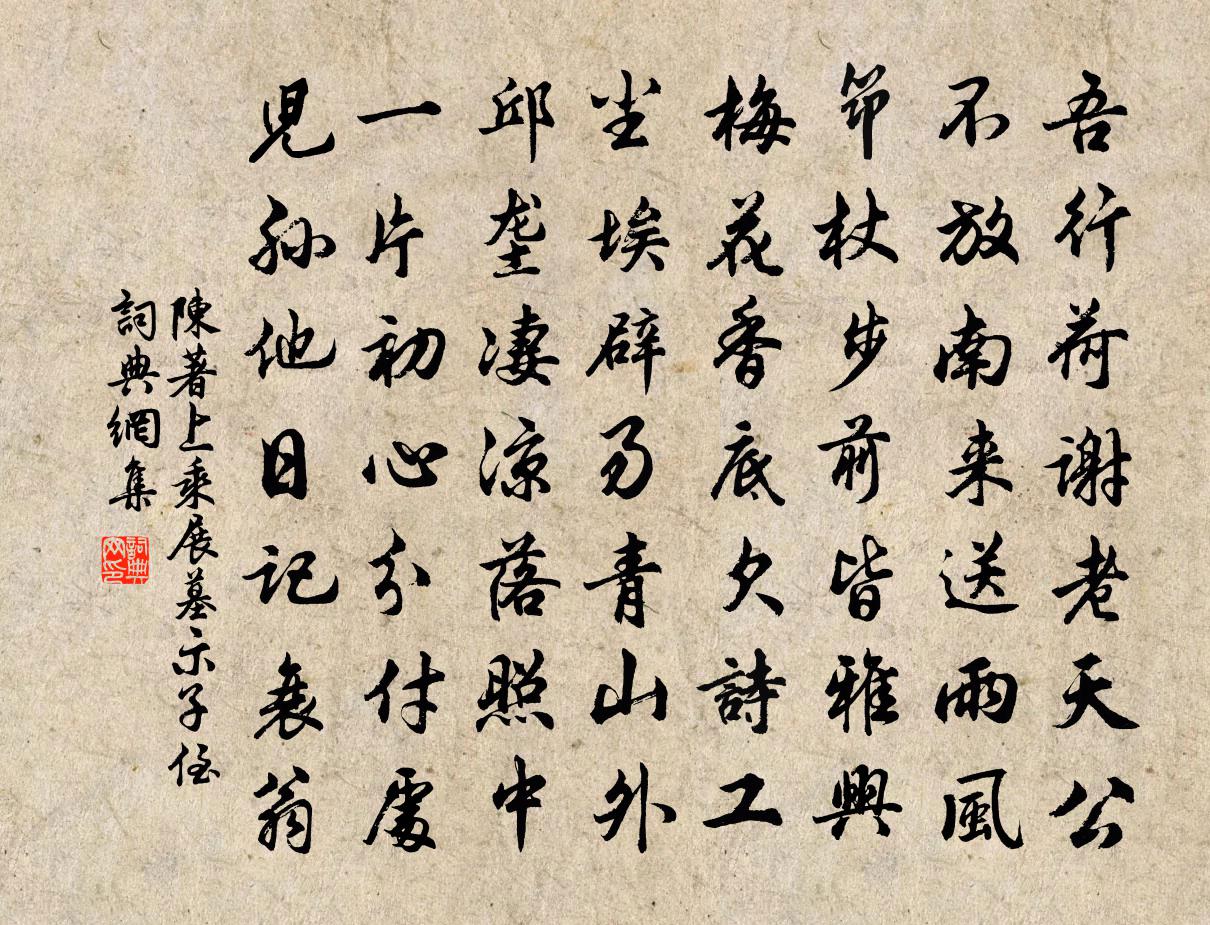 吾行荷謝老天公
不放南来送雨風
筇杖步前皆雅興
梅花香底欠詩工
尘埃辟易青山外
邱垄淒涼落照中
一片初心分付處
児孫他日記衰翁
陳著上乘展墓示子侄
詞典網集
詞典网印